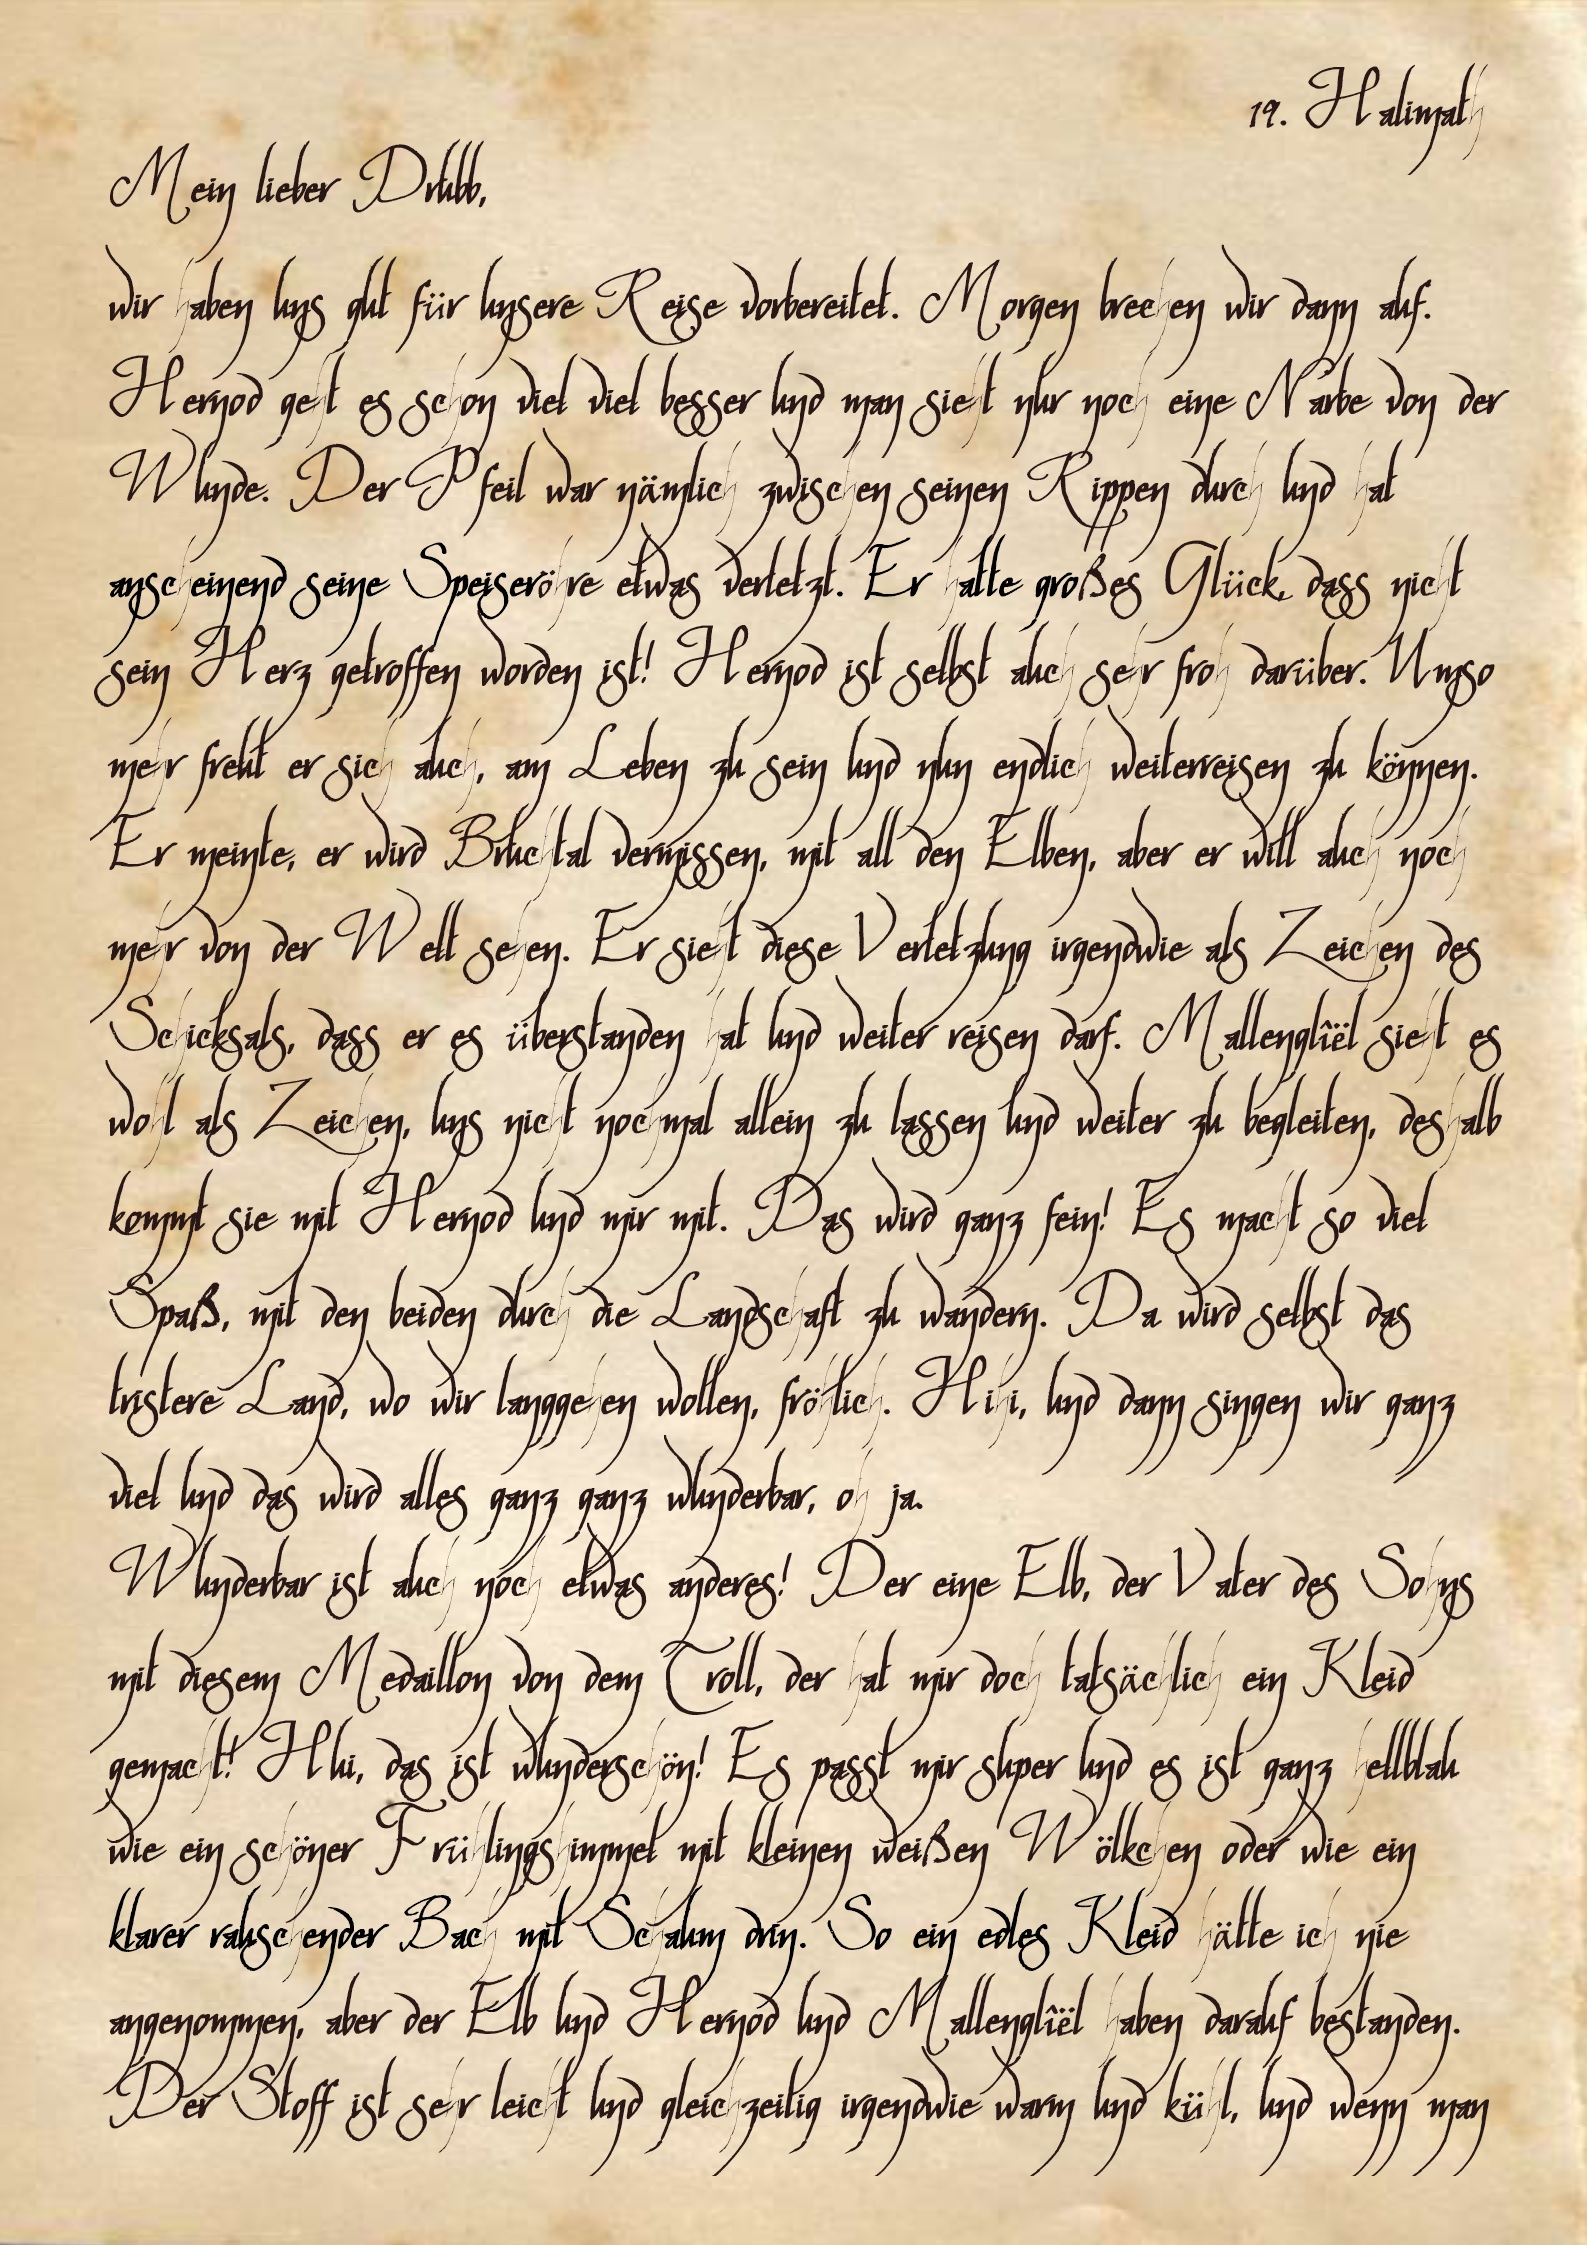 19. Halimath
Mein lieber Drubb,
wir haben uns gut für unsere Reise vorbereitet. Morgen brechen wir dann auf.
Hernod geht es schon viel viel besser und man sieht nur noch eine Narbe von der
Wunde. Der Pfeil war nämlich zwischen seinen Rippen durch und hat
anscheinend seine Speiseröhre etwas verletzt. Er hatte großes Glück, dass nicht
sein Herz getroffen worden ist! Hernod ist selbst auch sehr froh darüber. Umso
mehr freut er sich auch, am Leben zu sein und nun endlich weiterreisen zu können.
Er meinte, er wird Bruchtal vermissen, mit all den Elben, aber er will auch noch
mehr von der Welt sehen. Er sieht diese Verletzung irgendwie als Zeichen des
Schicksals, dass er es überstanden hat und weiter reisen darf. Mallenglîël sieht es
wohl als Zeichen, uns nicht nochmal allein zu lassen und weiter zu begleiten, deshalb
kommt sie mit Hernod und mir mit. Das wird ganz fein! Es macht so viel
Spaß, mit den beiden durch die Landschaft zu wandern. Da wird selbst das
tristere Land, wo wir langgehen wollen, fröhlich. Hihi, und dann singen wir ganz
viel und das wird alles ganz ganz wunderbar, oh ja.
Wunderbar ist auch noch etwas anderes! Der eine Elb, der Vater des Sohns
mit diesem Medaillon von dem Troll, der hat mir doch tatsächlich ein Kleid
gemacht! Hui, das ist wunderschön! Es passt mir super und es ist ganz hellblau
wie ein schöner Frühlingshimmel mit kleinen weißen Wölkchen oder wie ein
klarer rauschender Bach mit Schaum drin. So ein edles Kleid hätte ich nie
angenommen, aber der Elb und Hernod und Mallenglîël haben darauf bestanden.
Der Stoff ist sehr leicht und gleichzeitig irgendwie warm und kühl, und wenn man